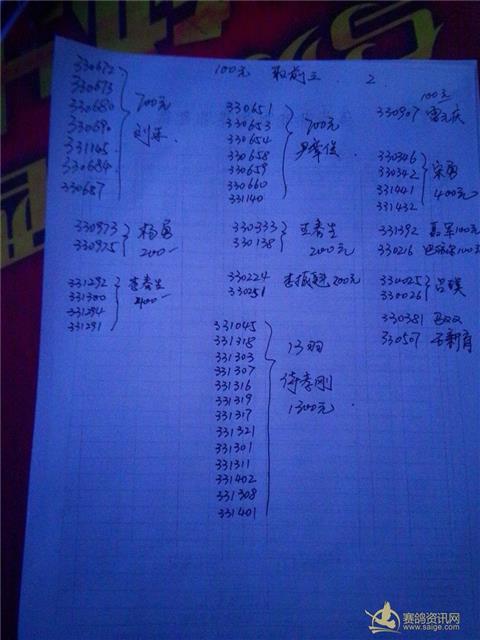 100元 取前三 2
330672
330673
330680
330690
331145
330684
330687
700元
330651
330653
330654
330658
330659
330660
331140
700元
100元
330907
330346
330342
331441
331432
宋
400元
330973
330975
杨勇
200
330333
330138
王春生
200元
331392 100元
330216 100元
331292
331300
331294
331291
李春生
400
330224
330251
李振 200元
330025
330026
吕
330381
330507 王新育
331045
331318
331303
331307
331316
331319
331317
331321
331301
331311
331402
331308
331401
13羽
侍孝刚
1300元
赛鸽资讯网
www.saige.com